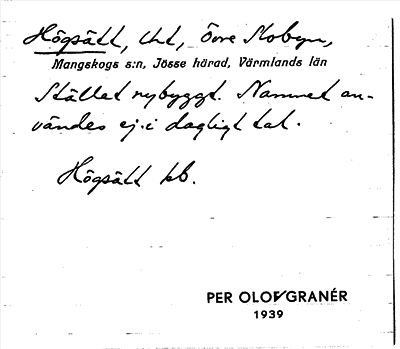 Högsätt, tht, Övre Slobyn,
Mangskogs s:n, Jösse härad, Värmlands län
Stället nybyggt. Namnet an-
vändes ej i dagligt tal.
Högsätt kb.
PER OLOV GRANÉR
1939